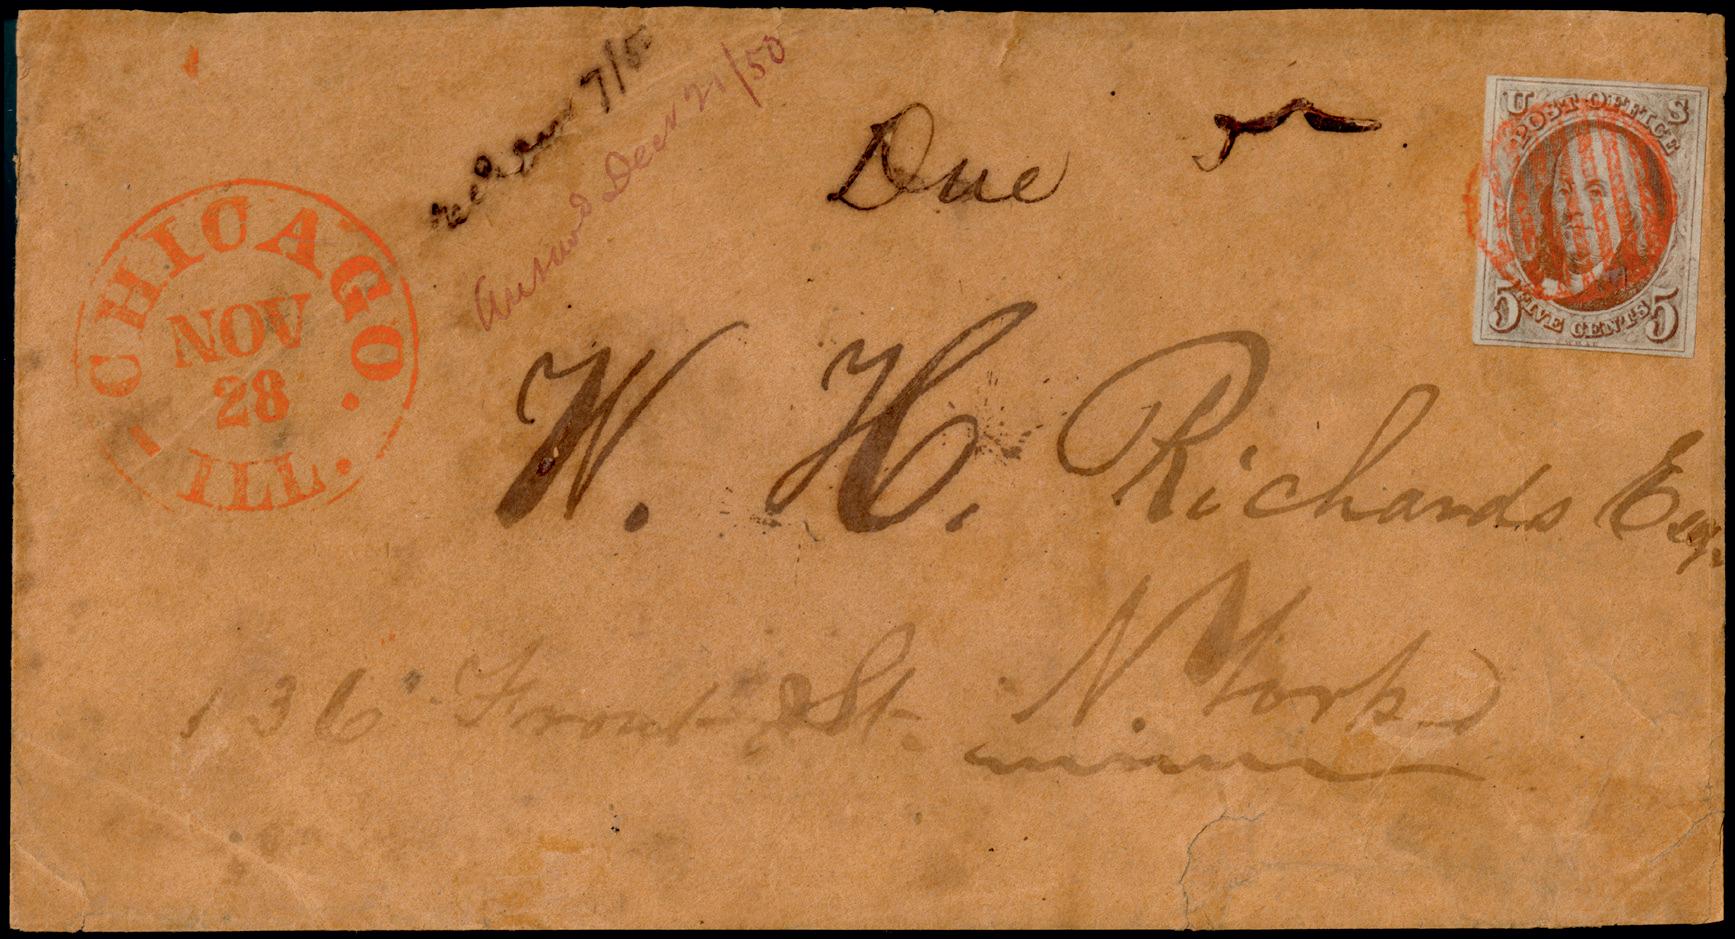 Due
CHICAGO
NOV
28
ILL.
7/5
Dec 21/50
U S
POST OFFICE
5 FIVE CENTS 5
W. H. Richards Esq.
136 Front St. N. York